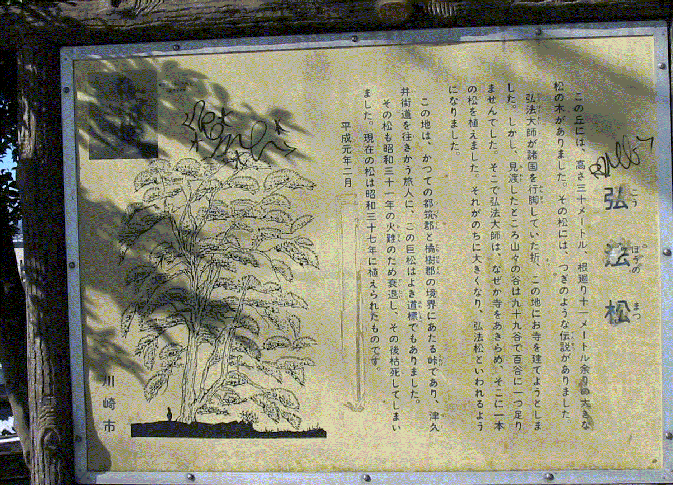 弘法松
こうぼうのまつ
この丘には、高さ三十メートル、根廻り十一メートル余りの大きな
松の木がありました。その松には、つぎのような伝説がありました
弘法大師が諸国を行脚していた折、この地にお寺を建てようとしま
した。しかし、見渡したところ山々の谷は九十九谷で百谷に一つ足り
ませんでした。そこで弘法大師は、なぜか寺をあきらめ、そこに一本
の松を植えました。それがのちに大きくなり、弘法松といわれるよう
になりました。
この地は、かつての都筑郡と橘樹郡の境界にあたる峠であり、津久
井街道を往きかう旅人に、この巨松はよき道標でもありました。
その松も昭和三十一年の火難のため衰退し、その後枯死してしまい
ました。現在の松は昭和三十七年に植えられたものです。
平成元年二月
川崎市